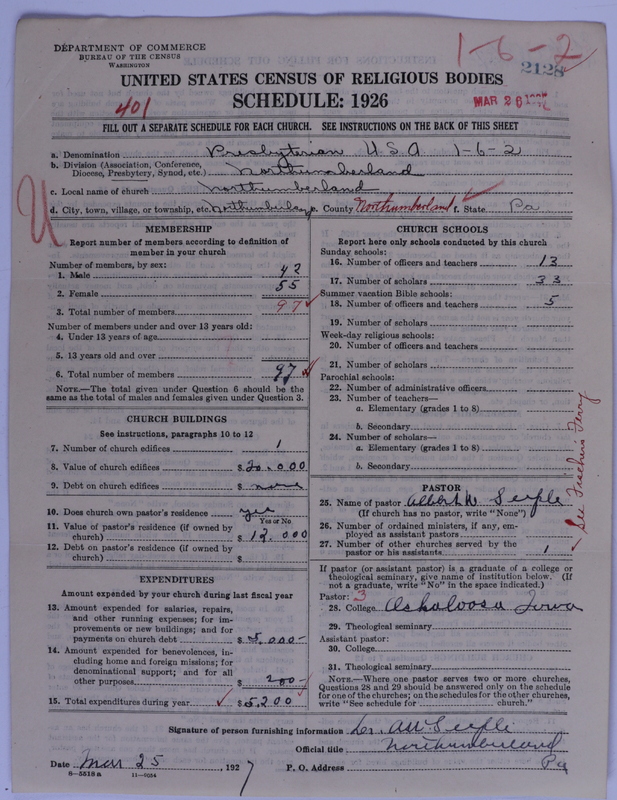 DEPARTMENT OF COMMERCE
BUREAU OF THE CENSUS
WASHINGTON
1-6-2
2128
UNITED STATES CENSUS OF RELIGIOUS BODIES
401
SCHEDULE: 1926
MAR 26 1927
FILL OUT A SEPARATE SCHEDULE FOR EACH CHURCH. SEE INSTRUCTIONS ON THE BACK OF THIS SHEET
a. Denomination Presbyterian U.S.A 1-6-2
b. Division (Association, Conference, Diocese, Presbytery, Synod, etc.) Northumberland
c. Local name of church Northumberland
d. City, town, village, or township, etc. Northumberland e. County Northumberland f. State Pa
MEMBERSHIP
Report number of members according to definition of
member in your church
Number of members, by sex:
1. Male 42
2. Female 55
3. Total number of members 97
Number of members under and over 13 years old:
4. Under 13 years of age
5. 13 years old and over
6. Total number of members 97
NOTE.—The total given under Question 6 should be the
same as the total of males and females given under Question 3.
CHURCH BUILDINGS
See instructions, paragraphs 10 to 12
7. Number of church edifices 1
8. Value of church edifices $ 20.000
9. Debt on church edifices $ none
10. Does church own pastor's residence yes
Yes or No
11. Value of pastor's residence (if owned by
church) $ 12.000
12. Debt on pastor's residence (if owned by
church) $
EXPENDITURES
Amount expended by your church during last fiscal year
13. Amount expended for salaries, repairs,
and other running expenses; for im-
provements or new buildings; and for
payments on church debt $ 5.000-
14. Amount expended for benevolences, in-
cluding home and foreign missions; for
denominational support; and for all
other purposes $ 200-
15. Total expenditures during year $ 5.200
CHURCH SCHOOLS
Report here only schools conducted by this church
Sunday schools:
16. Number of officers and teachers 13
17. Number of scholars 33
Summer vacation Bible schools:
18. Number of officers and teachers 5
19. Number of scholars
Week-day religious schools:
20. Number of officers and teachers
21. Number of scholars
Parochial schools:
22. Number of administrative officers
23. Number of teachers—
a. Elementary (grades 1 to 8)
b. Secondary
24. Number of scholars—
a. Elementary (grades 1 to 8)
b. Secondary
See Fischers Ferry
PASTOR
25. Name of pastor Albert W Seiple
(If church has no pastor, write "None")
26. Number of ordained ministers, if any, em-
ployed as assistant pastors
27. Number of other churches served by the
pastor or his assistants 1
If pastor (or assistant pastor) is a graduate of a college or
theological seminary, give name of institution below. (If
not a graduate, write "No" in the space indicated.)
Pastor: 3
28. College Oskaloosa Iowa
29. Theological seminary
Assistant pastor:
30. College
31. Theological seminary
NOTE.—Where one pastor serves two or more churches,
Questions 28 and 29 should be answered only on the schedule
for one of the churches; on the schedules for the other churches,
write "See schedule for church."
Signature of person furnishing information AW Seiple
Official title Northumberland
Date Mar 25, 1927 P. O. Address Pa
8-5518a 11-5054